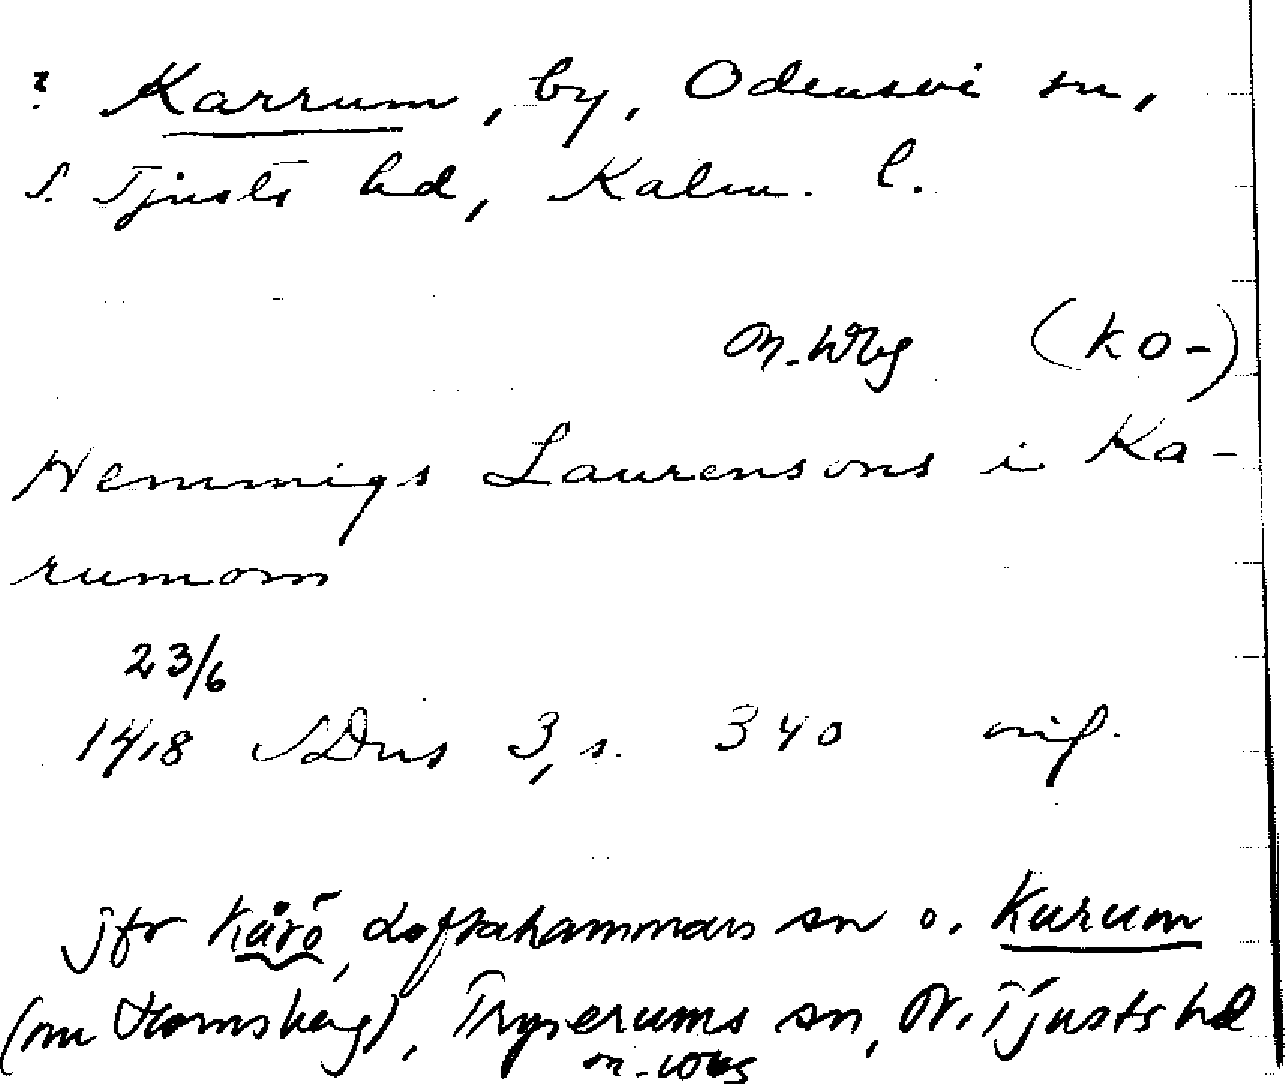 ? Karrum, by, Odensvi sn,
S. Tjusts hd, Kalm. l.
(ko-)
Hemmigs Laurensons i Ka-
rumom
23/6
1418 SDns 3, s. 340
jfr Kårö, Loftahammars sn o. Kurum
(nu Hornsberg), Tryserums sn, N. Tjusts hd